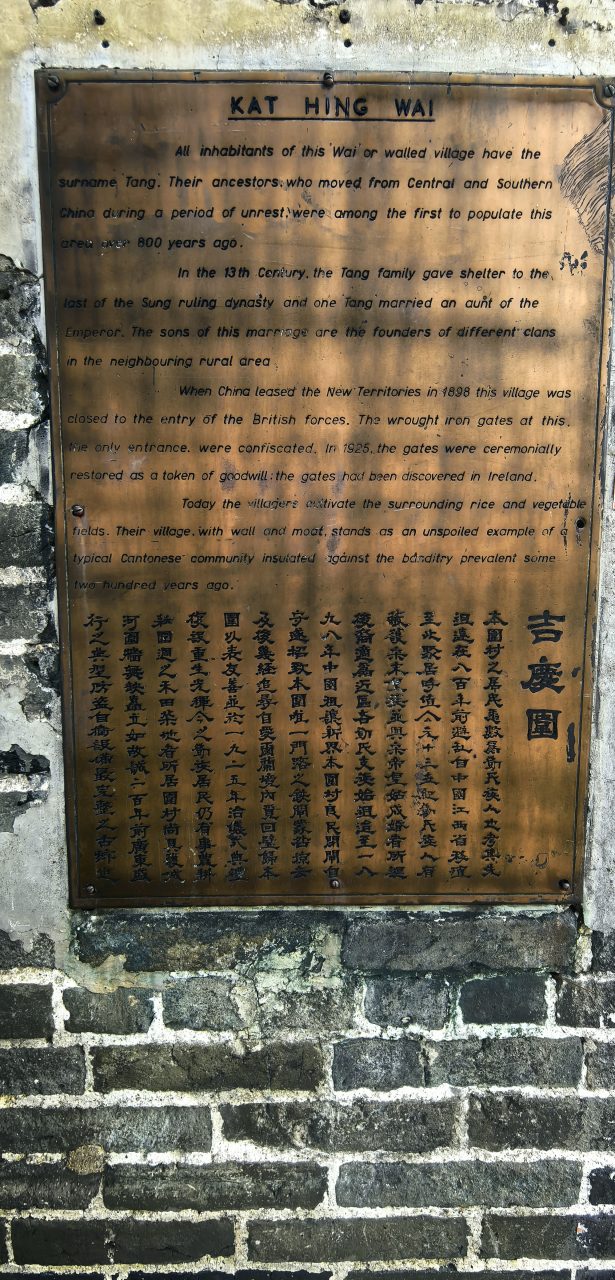 KAT HING WAI
All inhabitants of this Wai or walled village have the
surname Tang. Their ancestors, who moved from Central and Southern
China during a period of unrest, were among the first to populate this
area over 800 years ago.
In the 13th Century, the Tang family gave shelter to the
last of the Sung ruling dynasty and one Tang married an aunt of the
Emperor. The sons of this marriage are the founders of different clans
in the neighbouring rural area
When China leased the New Territories in 1898 this village was
closed to the entry of the British forces. The wrought iron gates at this,
the only entrance, were confiscated. In 1925, the gates were ceremonially
restored as a token of goodwill: the gates had been discovered in Ireland.
Today the villagers cultivate the surrounding rice and vegetable
fields. Their village, with wall and moat, stands as an unspoiled example of a
typical Cantonese community insulated against the banditry prevalent some
two hundred years ago.
吉慶圍
本圍村之居民悉數為鄧氏族人也考其先
祖遠在八百年前避亂自中國江西省移
至此聚居時值公元十三世紀鄧氏族人有
後裔適為近區各鄧氏支族始祖 至一八
九八年中國租讓新界本圍村居民閉閘自
守 招致本圍唯一門路之鐵閘
及後幾經追尋自愛爾蘭境內覓回 歸本
圍以表友善並於一九二五年 儀式典禮
復後重生光輝今之鄧族居民仍有 農耕
於圍週之禾田菜地者所居圍村尚具護城
河圍牆 矗立如故誠二百年前廣東盛
行之典型防盜自衛設備最完整之古鄉